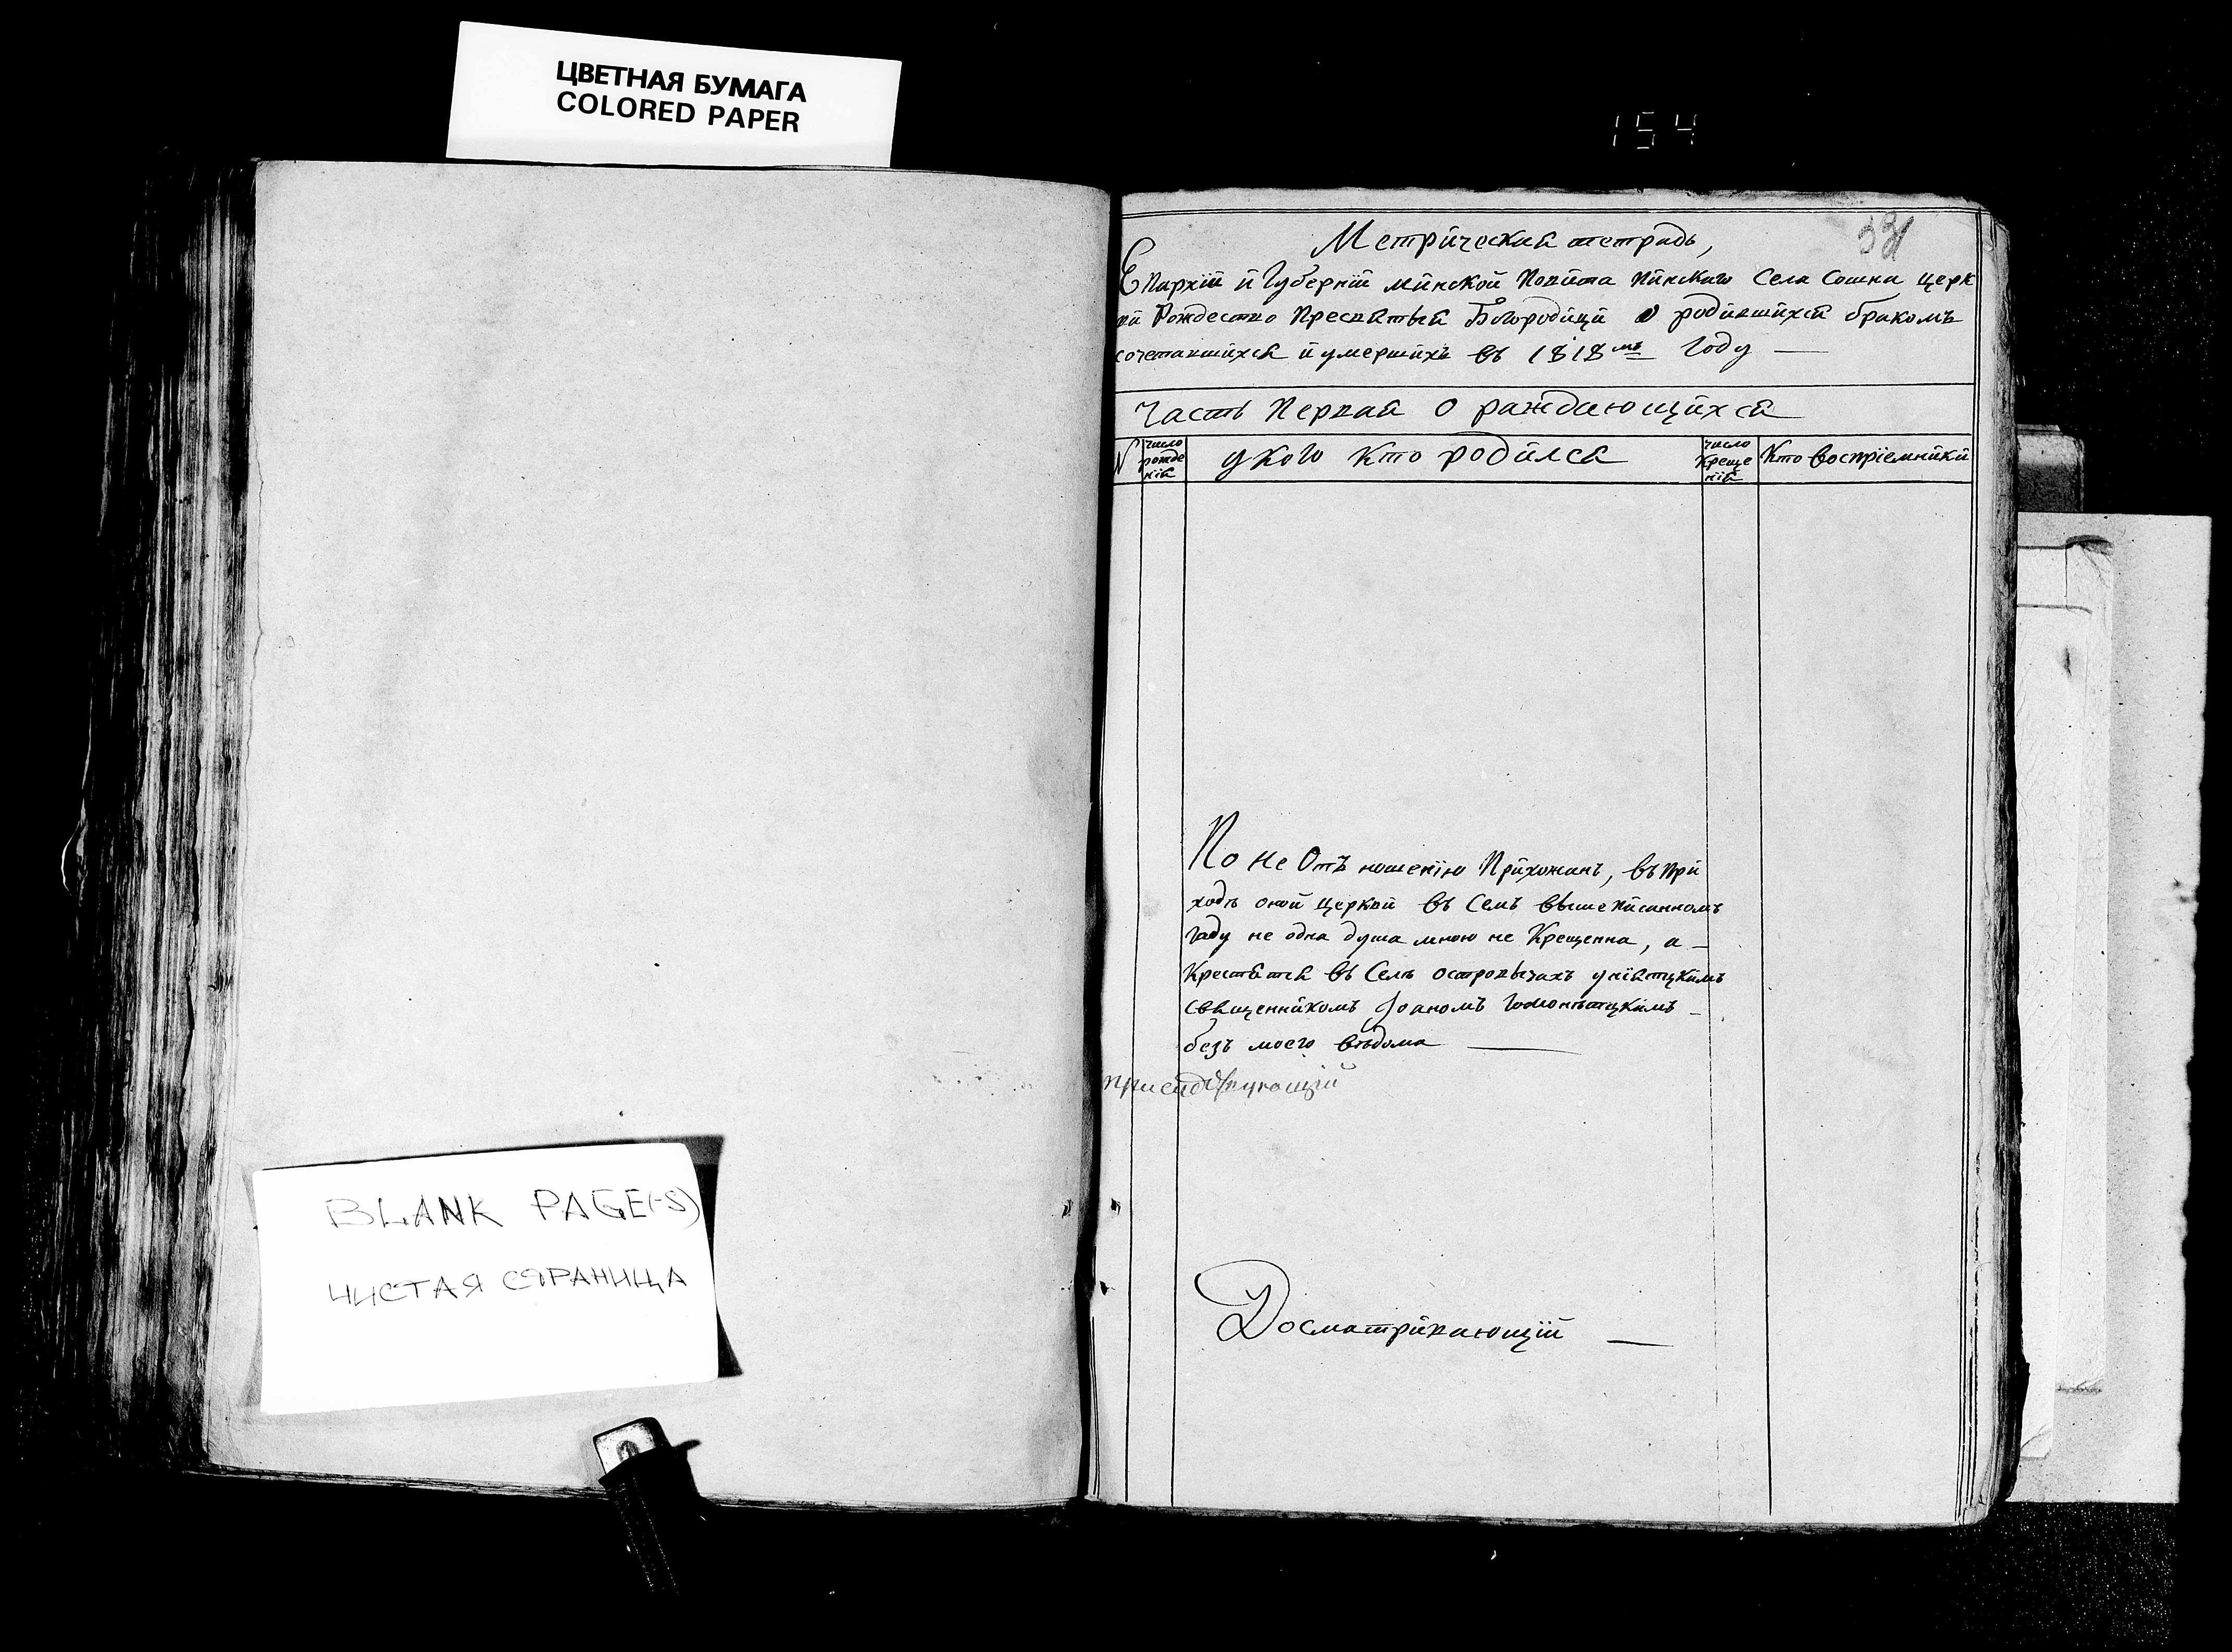 ЦВЕТНАЯ БУМАГА
COLORED PAPER
154
Метрическая тетрадь,
Епархіи и Губерніи Минской Повита Пинскаго Села Сошна церк
ви Рождество Пресвятыя Богородици о родившихся бракомъ
сочетавшихся и умершихъ въ 1818мъ Году —
Часть Первая о раждающихся
N число рожденія
у кого кто родился
число крещенія
Кто воспріемники
По не Отъ ношенію Прихожанъ, въ При
ходѣ оной церкви въ Семъ вышеписанномъ
Году не одна душа мною не Крещенна, а —
Крестятся въ Селѣ Островычахъ уніятцкимъ
священникомъ Іоаномъ
безъ моего вѣдома —
Досматривающій —
BLANK PAGE(-S)
ЧИСТАЯ СТРАНИЦА